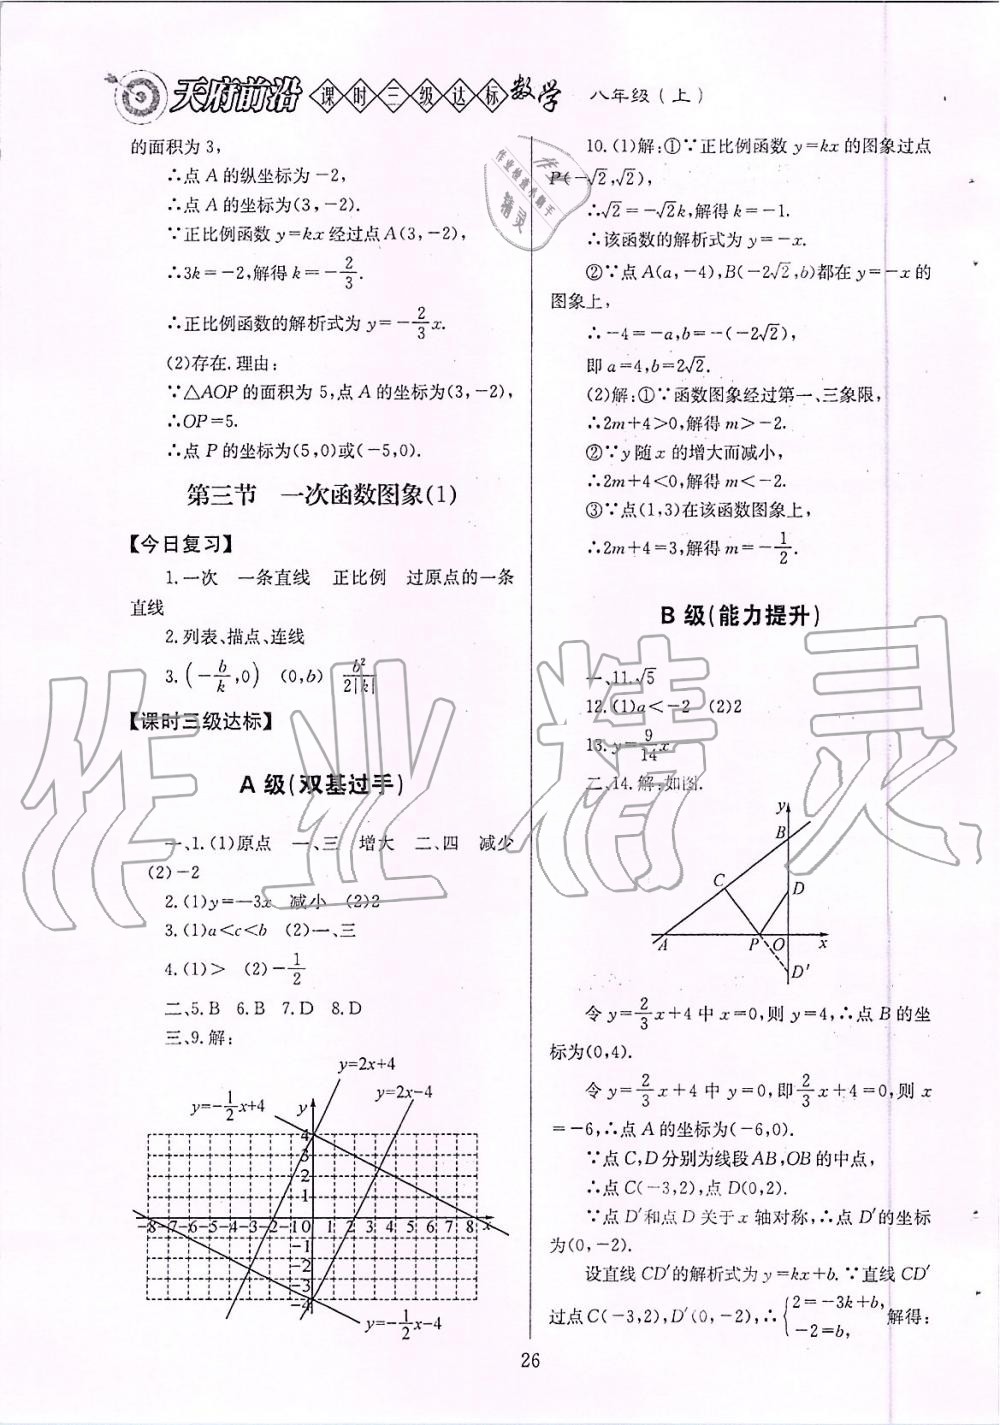 天府前沿 课时三级达标 数学 八年级(上)
的面积为3,
∴点A的纵坐标为-2,
∴点A的坐标为(3,-2).
∵正比例函数y=kx经过点A(3,-2),
∴3k=-2,解得k=-2/3.
∴正比例函数的解析式为y=-2/3x.
(2)存在.理由:
∵△AOP的面积为5,点A的坐标为(3,-2),
∴OP=5.
∴点P的坐标为(5,0)或(-5,0).
第三节 一次函数图象(1)
【今日复习】
1.一次 一条直线 正比例 过原点的一条
直线
2.列表、描点、连线
3.(-b/k,0) (0,b) b²/2|k|
【课时三级达标】
A级(双基过手)
一、1.(1)原点 一、三 增大 二、四 减少
(2)-2
2.(1)y=-3x 减小 (2)2
3.(1)a<c<b (2)一、三
4.(1)> (2)-1/2
二、5.B 6.B 7.D 8.D
三、9.解:
y=2x+4
y=2x-4
y=-1/2x+4
y
4
3
2
1
-8-7-6-5-4-3-2-1 0 1 2 3 4 5 6 7 8 x
-1
-2
-3
-4
y=-1/2x-4
10.(1)解:①∵正比例函数y=kx的图象过点
P(-√2,√2),
∴√2=-√2k,解得k=-1.
∴该函数的解析式为y=-x.
②∵点A(a,-4),B(-2√2,b)都在y=-x的
图象上,
∴-4=-a,b=-(-2√2),
即a=4,b=2√2.
(2)解:①∵函数图象经过第一、三象限,
∴2m+4>0,解得m>-2.
②∵y随x的增大而减小,
∴2m+4<0,解得m<-2.
③∵点(1,3)在该函数图象上,
∴2m+4=3,解得m=-1/2.
B级(能力提升)
一、11.√5
12.(1)a<-2 (2)2
13.y=9/14x
二、14.解:如图.
y
B
C
D
A
P
O
x
D'
令y=2/3x+4中x=0,则y=4,∴点B的坐
标为(0,4).
令y=2/3x+4中y=0,即2/3x+4=0,则x
=-6,∴点A的坐标为(-6,0).
∵点C,D分别为线段AB,OB的中点,
∴点C(-3,2),点D(0,2).
∵点D'和点D关于x轴对称,∴点D'的坐标
为(0,-2).
设直线CD'的解析式为y=kx+b.∵直线CD'
过点C(-3,2),D'(0,-2),∴{2=-3k+b, -2=b, 解得:
26
作业精灵